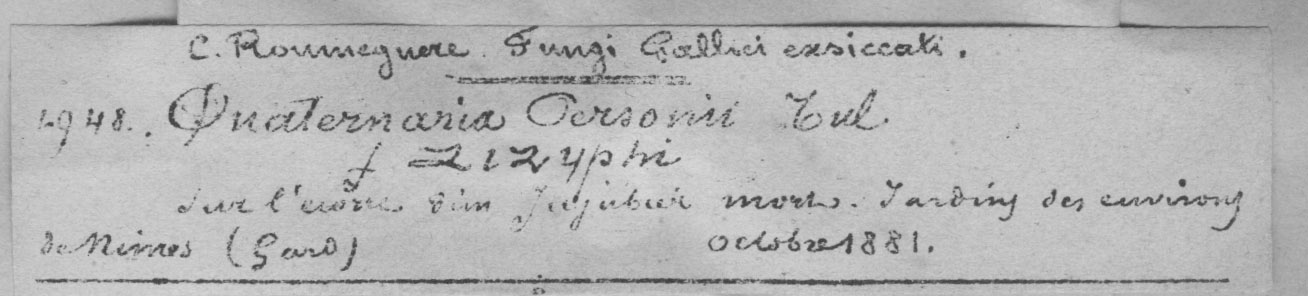 C. Roumeguere. Fungi Gallici exsiccati.
1948. Quaternaria Personii Tul
f Zizyphi
Sur l'écorce d'un Jujubier mort. Jardins des environs
de Nimes (Gard) octobre 1881.